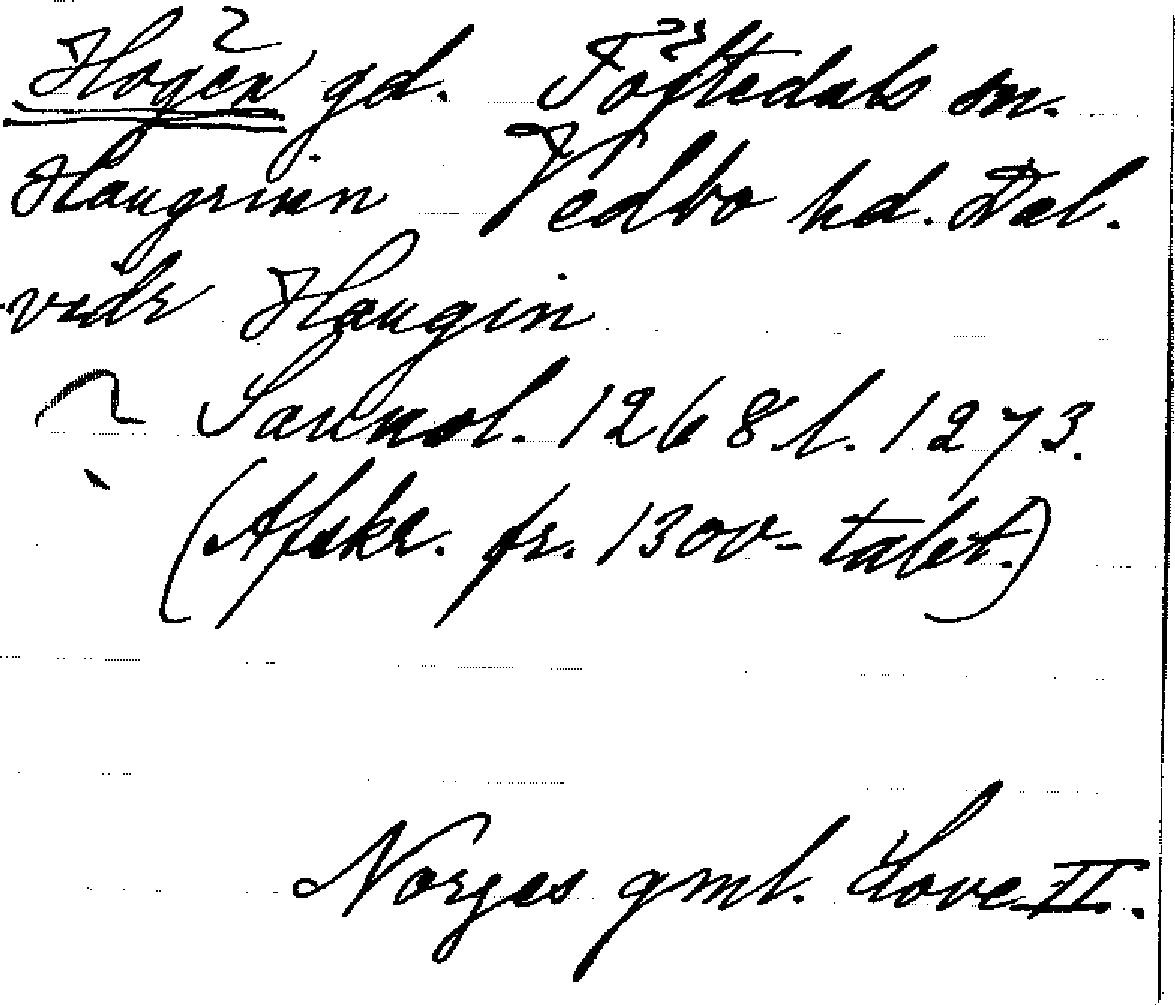 Högen gd. Töftedals sn.
Haugrinn Vedbo hd. Dal.
vidr Haugin
Saknol. 1268 l. 1273.
(Afskr. fr. 1300-talet.)
Norges gml. Love II.